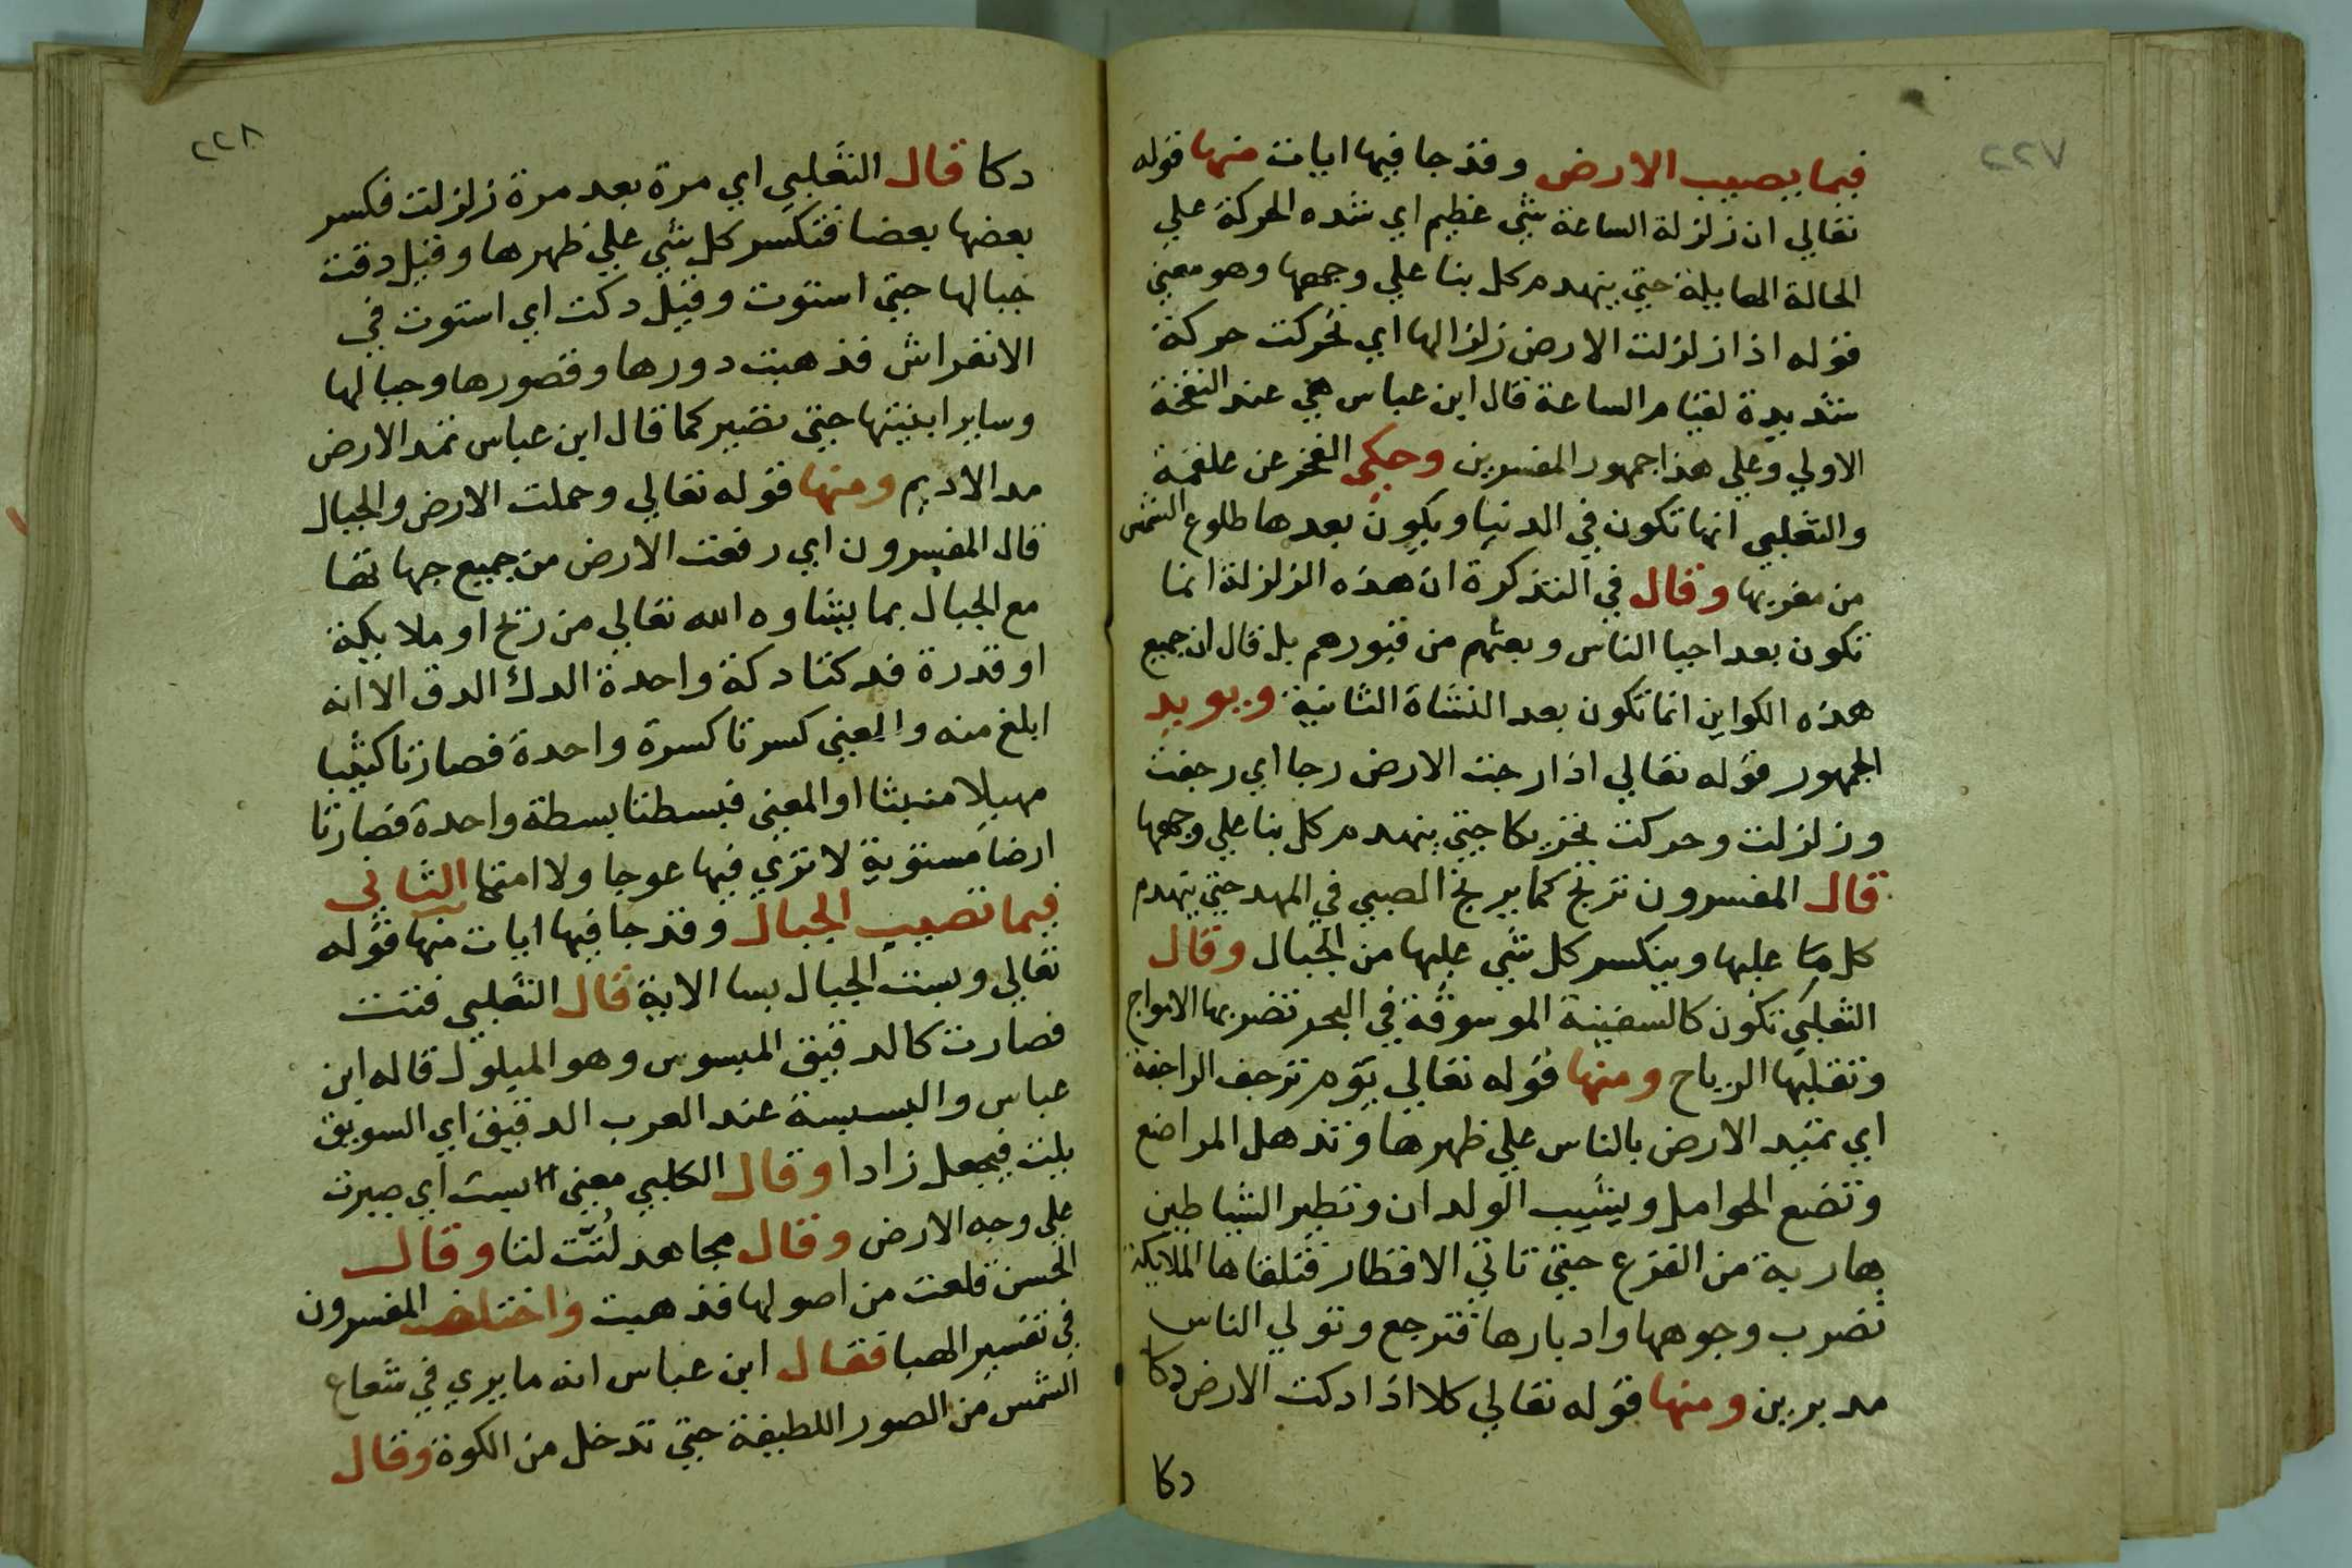 ٢٢٧
فيما يصيب الارض وقد جا فيها ايات منها قوله
تعالي ان زلزلة الساعة شي عظيم اي شده الحركة علي
الحالة الهايلة حتي ينهدم كل بنا علي وجهها وهو معني
قوله اذا زلزلت الارض زلزالها اي تحركت حركة
شديدة لقيام الساعة قال ابن عباس هي عند النفخة
الاولي وعلي هذا جمهور المفسرين وحكي الفخر عن علقمة
والثعلبي انها تكون في الدنيا ويكون بعدها طلوع الشمس
من مغربها وقال في التذكرة ان هذه الزلزلة انما
تكون بعد احيا الناس وبعثهم من قبورهم بل قال ان جميع
هذه الكواين انما تكون بعد النشاة الثانية ويويد
الجمهور قوله تعالي اذا رجت الارض رجا اي رجفت
وزلزلت وحركت تحريكا حتي ينهدم كل بنا علي وجهها
قال المفسرون ترتج كما يرتج الصبي في المهد حتي ينهدم
كل ما عليها وينكسر كل شي عليها من الجبال وقال
الثعلبي تكون كالسفينة الموسوقة في البحر تضربها الامواج
وتقلبها الرياح ومنها قوله تعالي يوم ترجف الراجفة
اي تميد الارض بالناس علي ظهرها وتذهل المراضع
وتضع الحوامل ويشيب الولدان وتطير الشياطين
هاربة من الفزع حتي تاتي الاقطار فتلقاها الملايكة
تضرب وجوهها وادبارها فترجع وتولي الناس
مدبرين ومنها قوله تعالي كلا اذا دكت الارض دكا
دكا
٢٢٨
دكا قال الثعلبي اي مرة بعد مرة زلزلت فكسر
بعضها بعضا فتكسر كل شي علي ظهرها وقيل دقت
جبالها حتي استوت وقيل دكت اي استوت في
الانفراش فذهبت دورها وقصورها وجبالها
وساير ابنيتها حتي تصير كما قال ابن عباس تمد الارض
مد الاديم ومنها قوله تعالي وحملت الارض والجبال
قال المفسرون اي رفعت الارض من جميع جهاتها
مع الجبال بما يشاوه الله تعالي من ريح او ملايكة
او قدرة فدكتا دكة واحدة الدك الدق الا انه
ابلغ منه والمعني كسرتا كسرة واحدة فصارتا كثيبا
مهيلا منبثا او المعني فبسطتا بسطة واحدة فصارتا
ارضا مستوية لا تري فيها عوجا ولا امتا الثاني
فيما تصيب الجبال وقد جا فيها ايات منها قوله
تعالي وبست الجبال بسا الاية قال الثعلبي فتت
فصارت كالدقيق المبسوس وهو المبلول قاله ابن
عباس والبسيسة عند العرب الدقيق اي السويق
يلت فيجعل زادا وقال الكلبي معني بست اي صيرت
علي وجه الارض وقال مجاهد لُتَّت لتا وقال
الحسن قلعت من اصولها فذهبت واختلف المفسرون
في تفسير الهبا فقال ابن عباس انه ما يري في شعاع
الشمس من الصور اللطيفة حتي تدخل من الكوة وقال